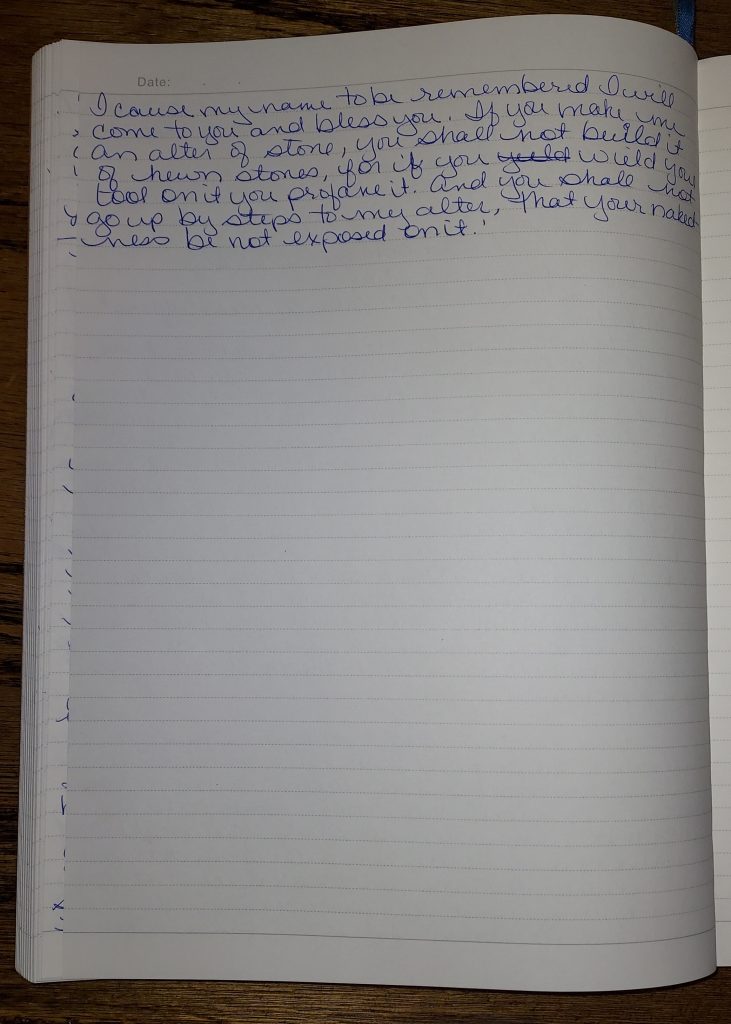 Date:
I cause my name to be remembered I will
come to you and bless you. If you make me
an alter of stone, you shall not build it
of hewn stones, for if you yield wield your
tool on it you profane it. And you shall not
go up by steps to my alter, that your naked-
ness be not exposed on it.'